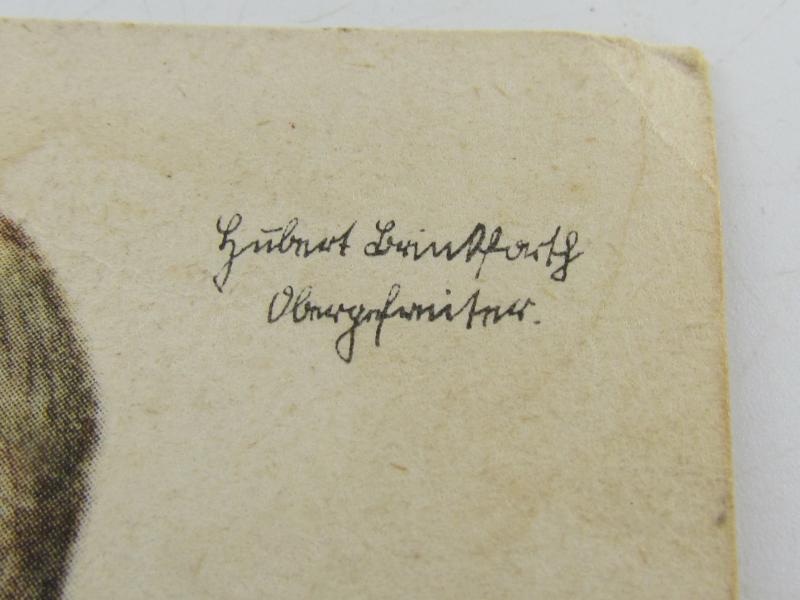 Hubert Brinkforth
Obergefreiter.